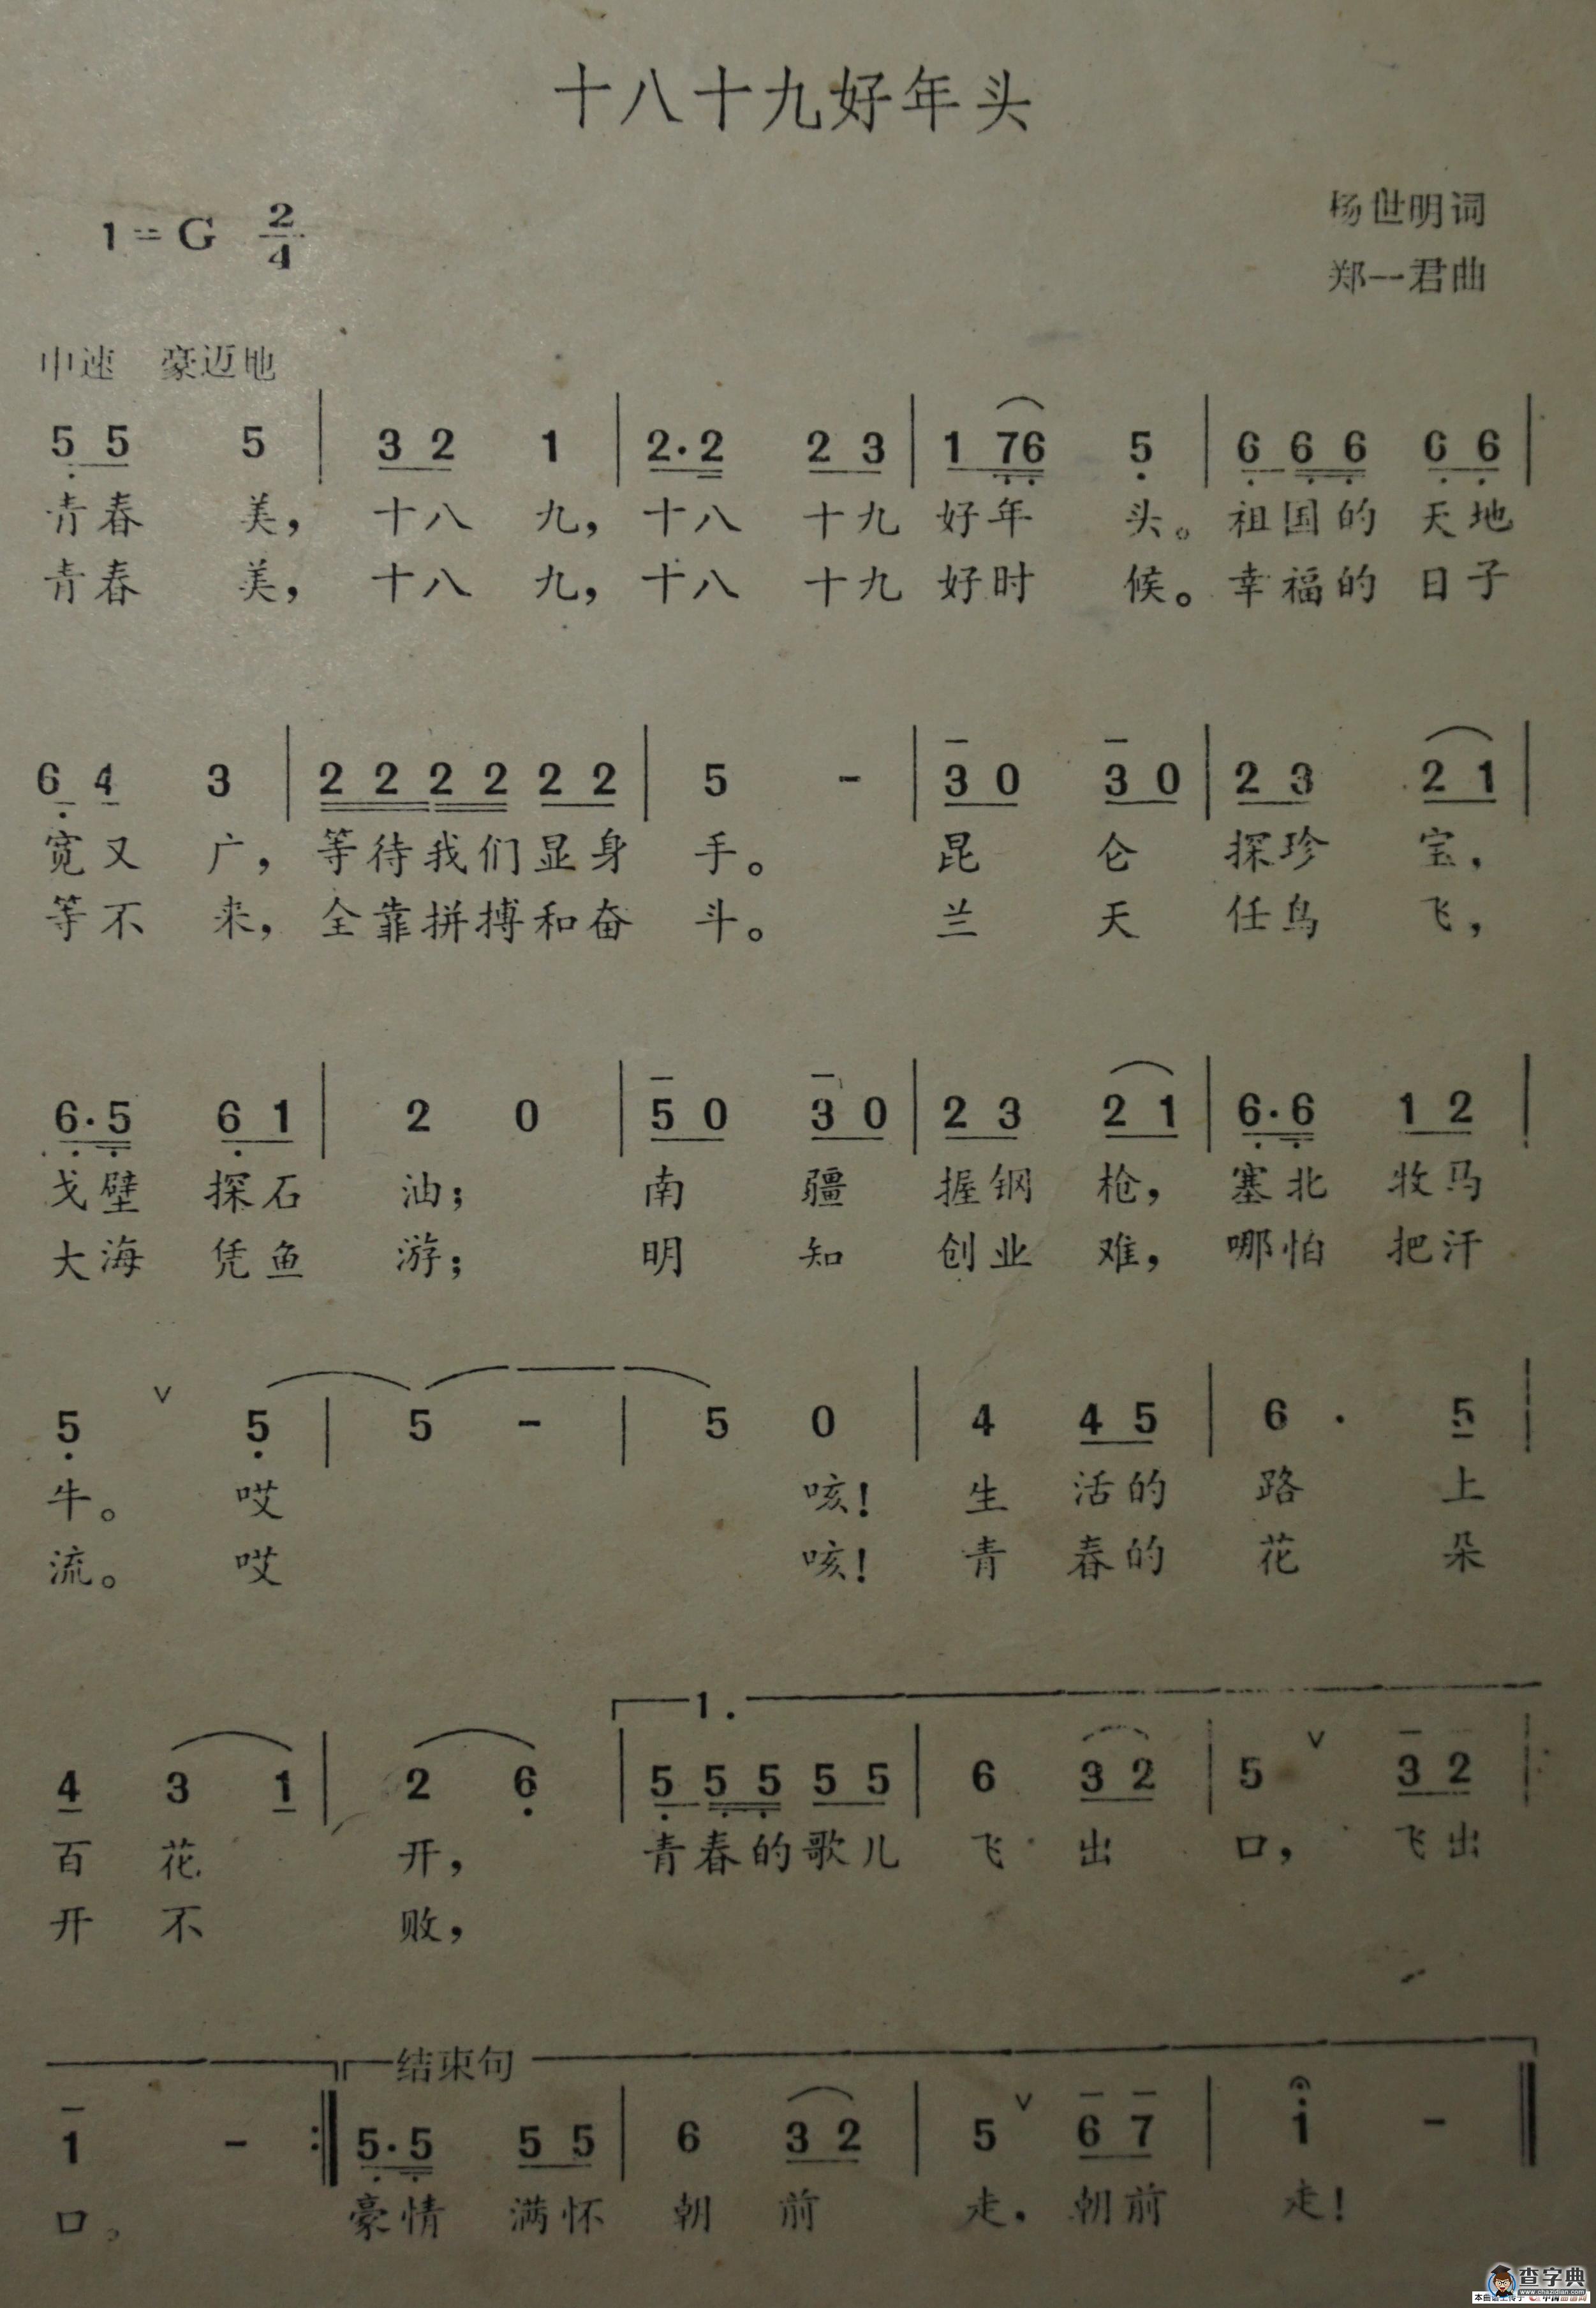 十八十九好年头
1=G 2/4
杨世明词
郑一君曲
中速 豪迈地
5 5 5 | 3 2 1 | 2·2 2 3 | 1 76 5 | 6 6 6 6 6 |
青春 美, 十八 九, 十八 十九 好年 头。 祖国的 天地
青春 美, 十八 九, 十八 十九 好时 候。 幸福的 日子
6 4 3 | 2 2 2 2 2 2 | 5 - | 3 0 3 0 | 2 3 2 1 |
宽又 广, 等待我们显身 手。 昆 仑 探珍 宝,
等不 来, 全靠拼搏和奋 斗。 兰 天 任鸟 飞,
6·5 6 1 | 2 0 | 5 0 3 0 | 2 3 2 1 | 6·6 1 2 |
戈壁 探石 油; 南 疆 握钢 枪, 塞北 牧马
大海 凭鱼 游; 明 知 创业 难, 哪怕 把汗
5 ∨ 5 | 5 - | 5 0 | 4 4 5 | 6 · 5 |
牛。 哎 咳! 生 活的 路 上
流。 哎 咳! 青 春的 花 朵
1.
4 3 1 | 2 6 | 5 5 5 5 5 | 6 3 2 | 5 ∨ 3 2 |
百 花 开, 青春的歌儿 飞 出 口, 飞出
开 不 败,
结束句
1 - :‖ 5·5 5 5 | 6 3 2 | 5 ∨ 6 7 | 1 - ‖
口。 豪情 满怀 朝 前 走, 朝前 走!
查字典
www.chazidian.com